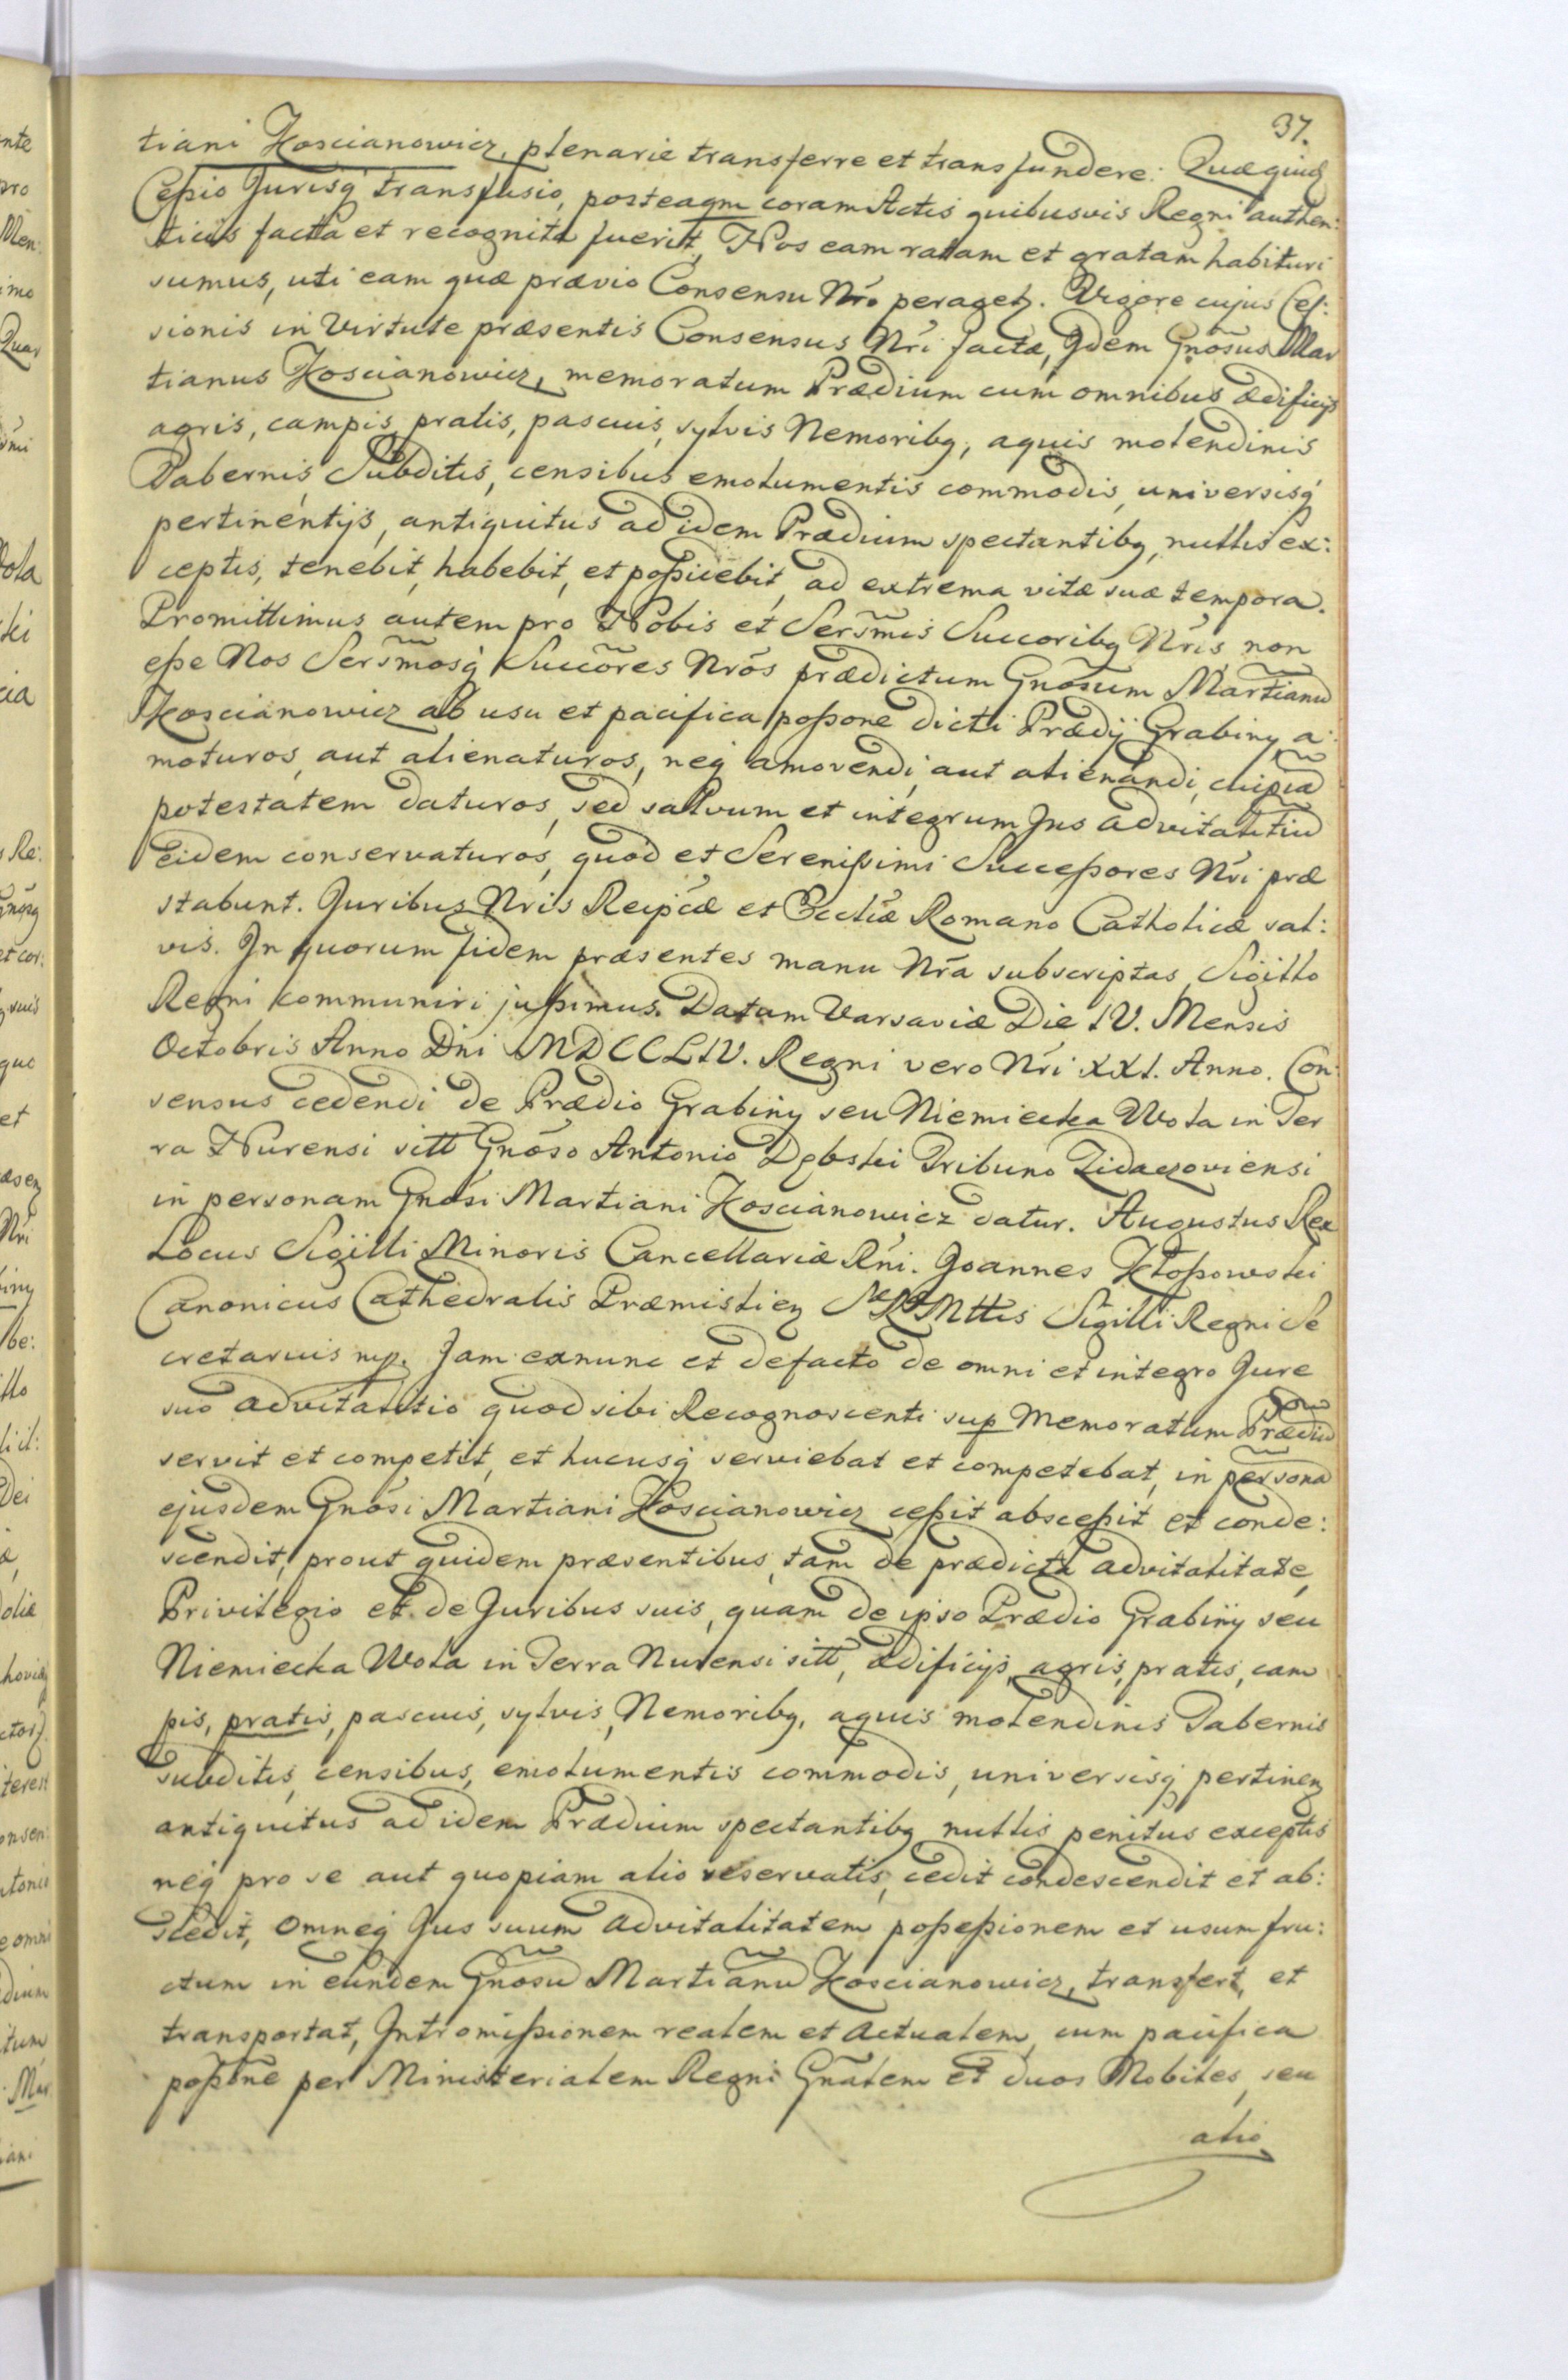 37.
tiani Koscianowicz, plenarie transferre et transfundere: Quæquid
Cessio Jurisq̃ transfusio, posteaqm coram Actis quibusvis Regni authen:
ticis facta et recognita fuerit, Nos eam ratam et gratam habituri
sumus, uti eam quæ prævio Consensu Nr̃o peraget. Vigore cujus Ces:
sionis in Virtute præsentis Consensus Nr̃i factæ, Idem Gnõsus Mar
tianus Koscianowicz, memoratum Prædium cum omnibus ædificijs
agris, campis, pratis, pascuis, sylvis Nemoribq, aquis molendinis
Tabernis Subditis, censibus emolumentis commodis, universisq̃
pertinentijs, antiquitus ad idem Prædium spectantibq, nullis ex:
ceptis, tenebit, habebit, et possidebit, ad extrema vitæ suæ tempora.
Promittimus autem pro Nobis et Serm̃is Succoribq Nr̃is, non
esse Nos Serm̃osq̃ Succõres Nrõs prædictum Gnõsum Martianũ
Koscianowicz ab usu et pacifica possone dicti Prædij Grabiny a:
moturos, aut alienaturos, neq̃ amovendi, aut alienandi, cuipiã
potestatem daturos, sed salvum et integrum Jus advitalitiũ
Eidem conservaturos, quod et Serenissimi Successores Nr̃i præ
stabunt. Juribus Nr̃is Reipcæ et Eccliæ Romano Catholicæ sal:
vis. In quorum fidem præsentes manu Nr̃a subscriptas, Sigillo
Regni communiri jussimus. Datum Varsaviæ Die IV. Mensis
Octobris Anno Dñi MDCCLIV. Regni vero Nr̃i XXI. Anno. Con
sensus cedendi de Prædio Grabiny seu Niemiecka Wola in Ter
ra Nurensi sitt Gnõso Antonio Dębski Tribuno Zidaczoviensi
in personam Gnõsi Martiani Koscianowicz datur. Augustus Rex
Locus Sigilli Minoris Cancellariæ Rñi. Joannes Kłossowski
Canonicus Cathedralis Præmislien S R Mttis Sigilli Regni Se
cretarius mp. Jam exnunc et defacto de omni et integro Jure
suo advitalitio quod sibi Recognoscenti sup Memoratum Prædiũ
servit et competit, et hucusq̃ serviebat et competebat, in personã
ejusdem Gnõsi Martiani Koscianowicz cessit abscessit et conde:
scendit, prout quidem præsentibus, tam de prædicta advitalitate,
Privilegio et de Juribus suis, quam de ipso Prædio Grabiny seu
Niemiecka Wola in Terra Nurensi sitt, ædificijs, agris, pratis, cam
pis, pratis, pascuis, sylvis, Nemoribq, aquis molendinis Tabernis
subditis, censibus, emolumentis commodis, universisq̃ pertinen
antiquitus ad idem Prædium spectantibq nullis penitus exceptis
neq̃ pro se aut quopiam alio reservatis, cedit condescendit et ab:
scedit, Omneq̃ Jus suum advitalitatem possessionem et usumfru:
ctum in eundem Gnõsũ Martianũ Koscianowicz, transfert, et
transportat, Intromissionem realem et actualem, cum pacifica
possõne per Ministerialem Regni Gnãlem et duos Nobiles, seu
alio